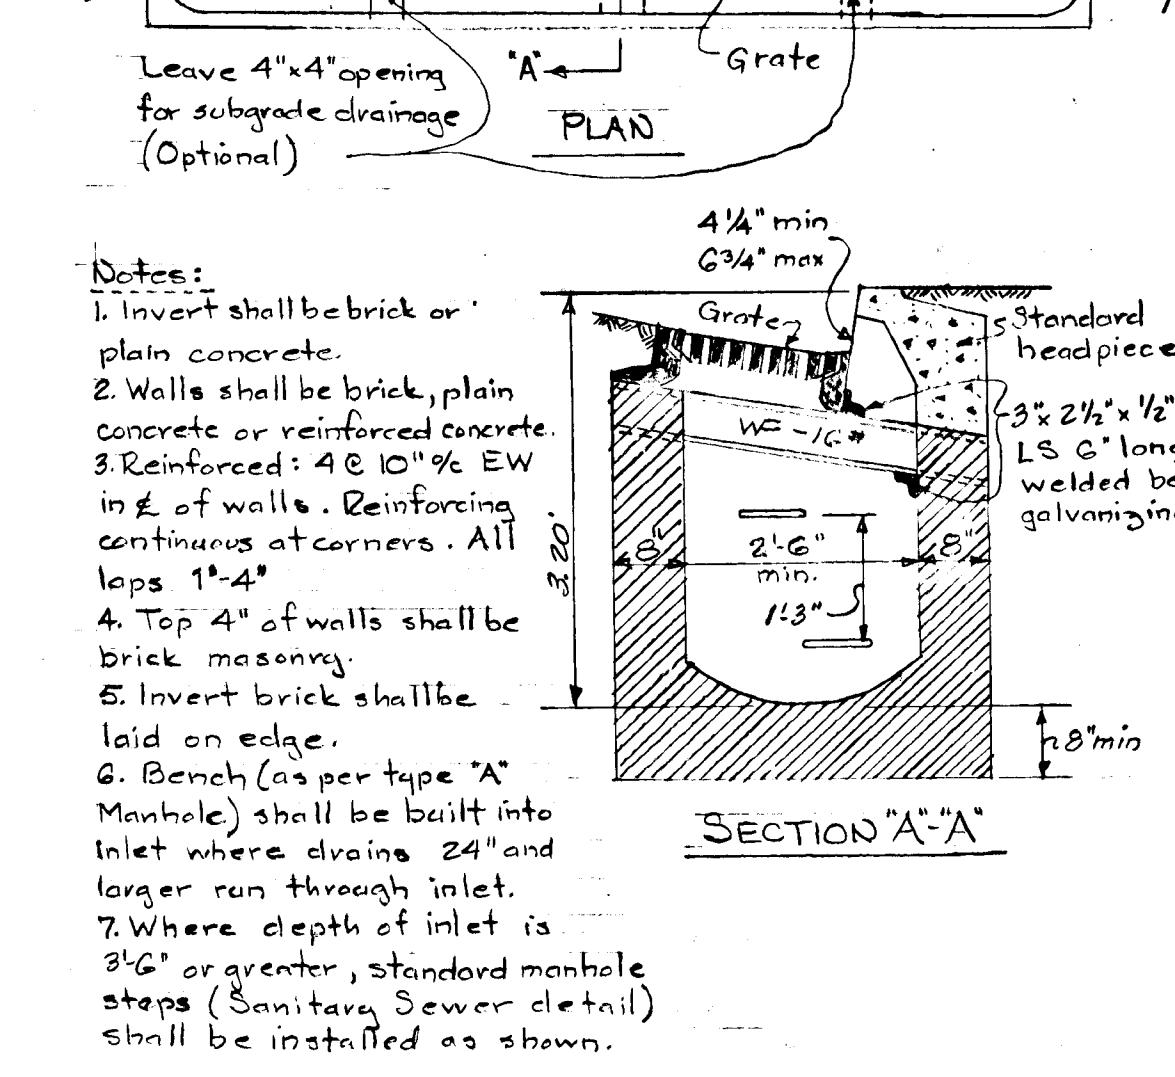 Leave 4"x4" opening
for subgrade drainage
(Optional)
"A"
Grate
PLAN
Notes:
1. Invert shall be brick or
plain concrete.
2. Walls shall be brick, plain
concrete or reinforced concrete.
3. Reinforced: 4 @ 10" o/c EW
in ℄ of walls. Reinforcing
continuous at corners. All
laps 1'-4"
4. Top 4" of walls shall be
brick masonry.
5. Invert brick shall be
laid on edge.
6. Bench (as per type "A"
Manhole) shall be built into
Inlet where drains 24" and
larger run through inlet.
7. Where depth of inlet is
3'-6" or greater, standard manhole
steps (Sanitary Sewer detail)
shall be installed as shown.
4 1/4" min
6 3/4" max
Grate
Standard
headpiece
3"x 2 1/2"x 1/2"
LS 6" long
welded be
galvanizin
-16#
3.20'
8"
2'-6"
min.
8"
1'-3"
8" min
SECTION "A"-"A"